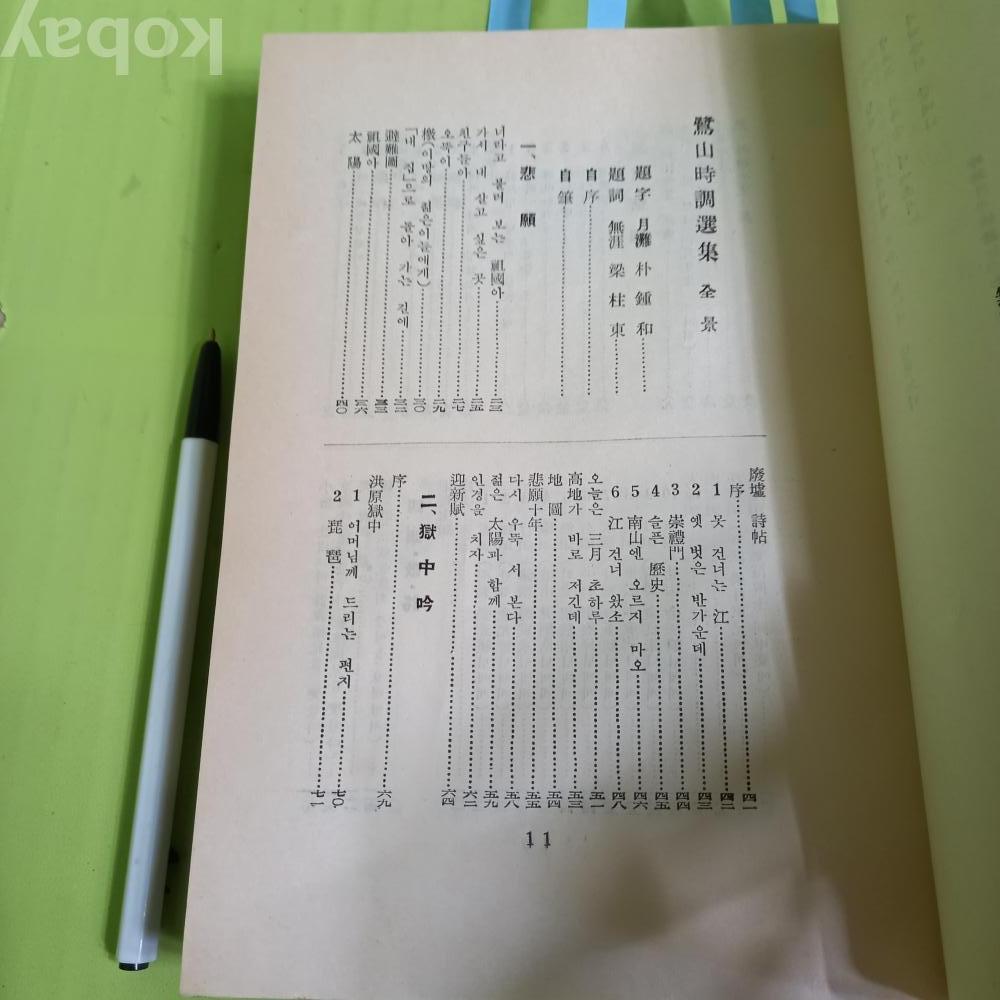 kobay
鷺山時調選集 全景
題字 月灘 朴鍾和………
題詞 無涯 梁柱東………
自序………
自筆………
一、悲願
너라고 불러 보는 祖國아………二三
가서 내 살고 싶은 곳………二五
친구들아………二七
오뚝이………二九
檄(이땅의 젊은이들에게)………三〇
「내 집」으로 돌아 가는 길에………三二
避難圖………三三
祖國아………三六
太陽………四〇
廢墟 詩帖
序………四一
1 못 건너는 江………四二
2 옛 벗은 반가운데………四三
3 崇禮門………四四
4 슬픈 歷史………四五
5 南山엔 오르지 마오………四六
6 江 건너 왔소………四八
오늘은 三月 초하루………五一
高地가 바로 저긴데………五三
地圖………五四
悲願十年………五五
다시 우뚝 서 본다………五八
젊은 太陽과 함께………五九
인경을 치자………六二
迎新賦………六四
二、獄中吟
序………六九
洪原獄中
1 어머님께 드리는 편지………七〇
2 琵琶………七一
11